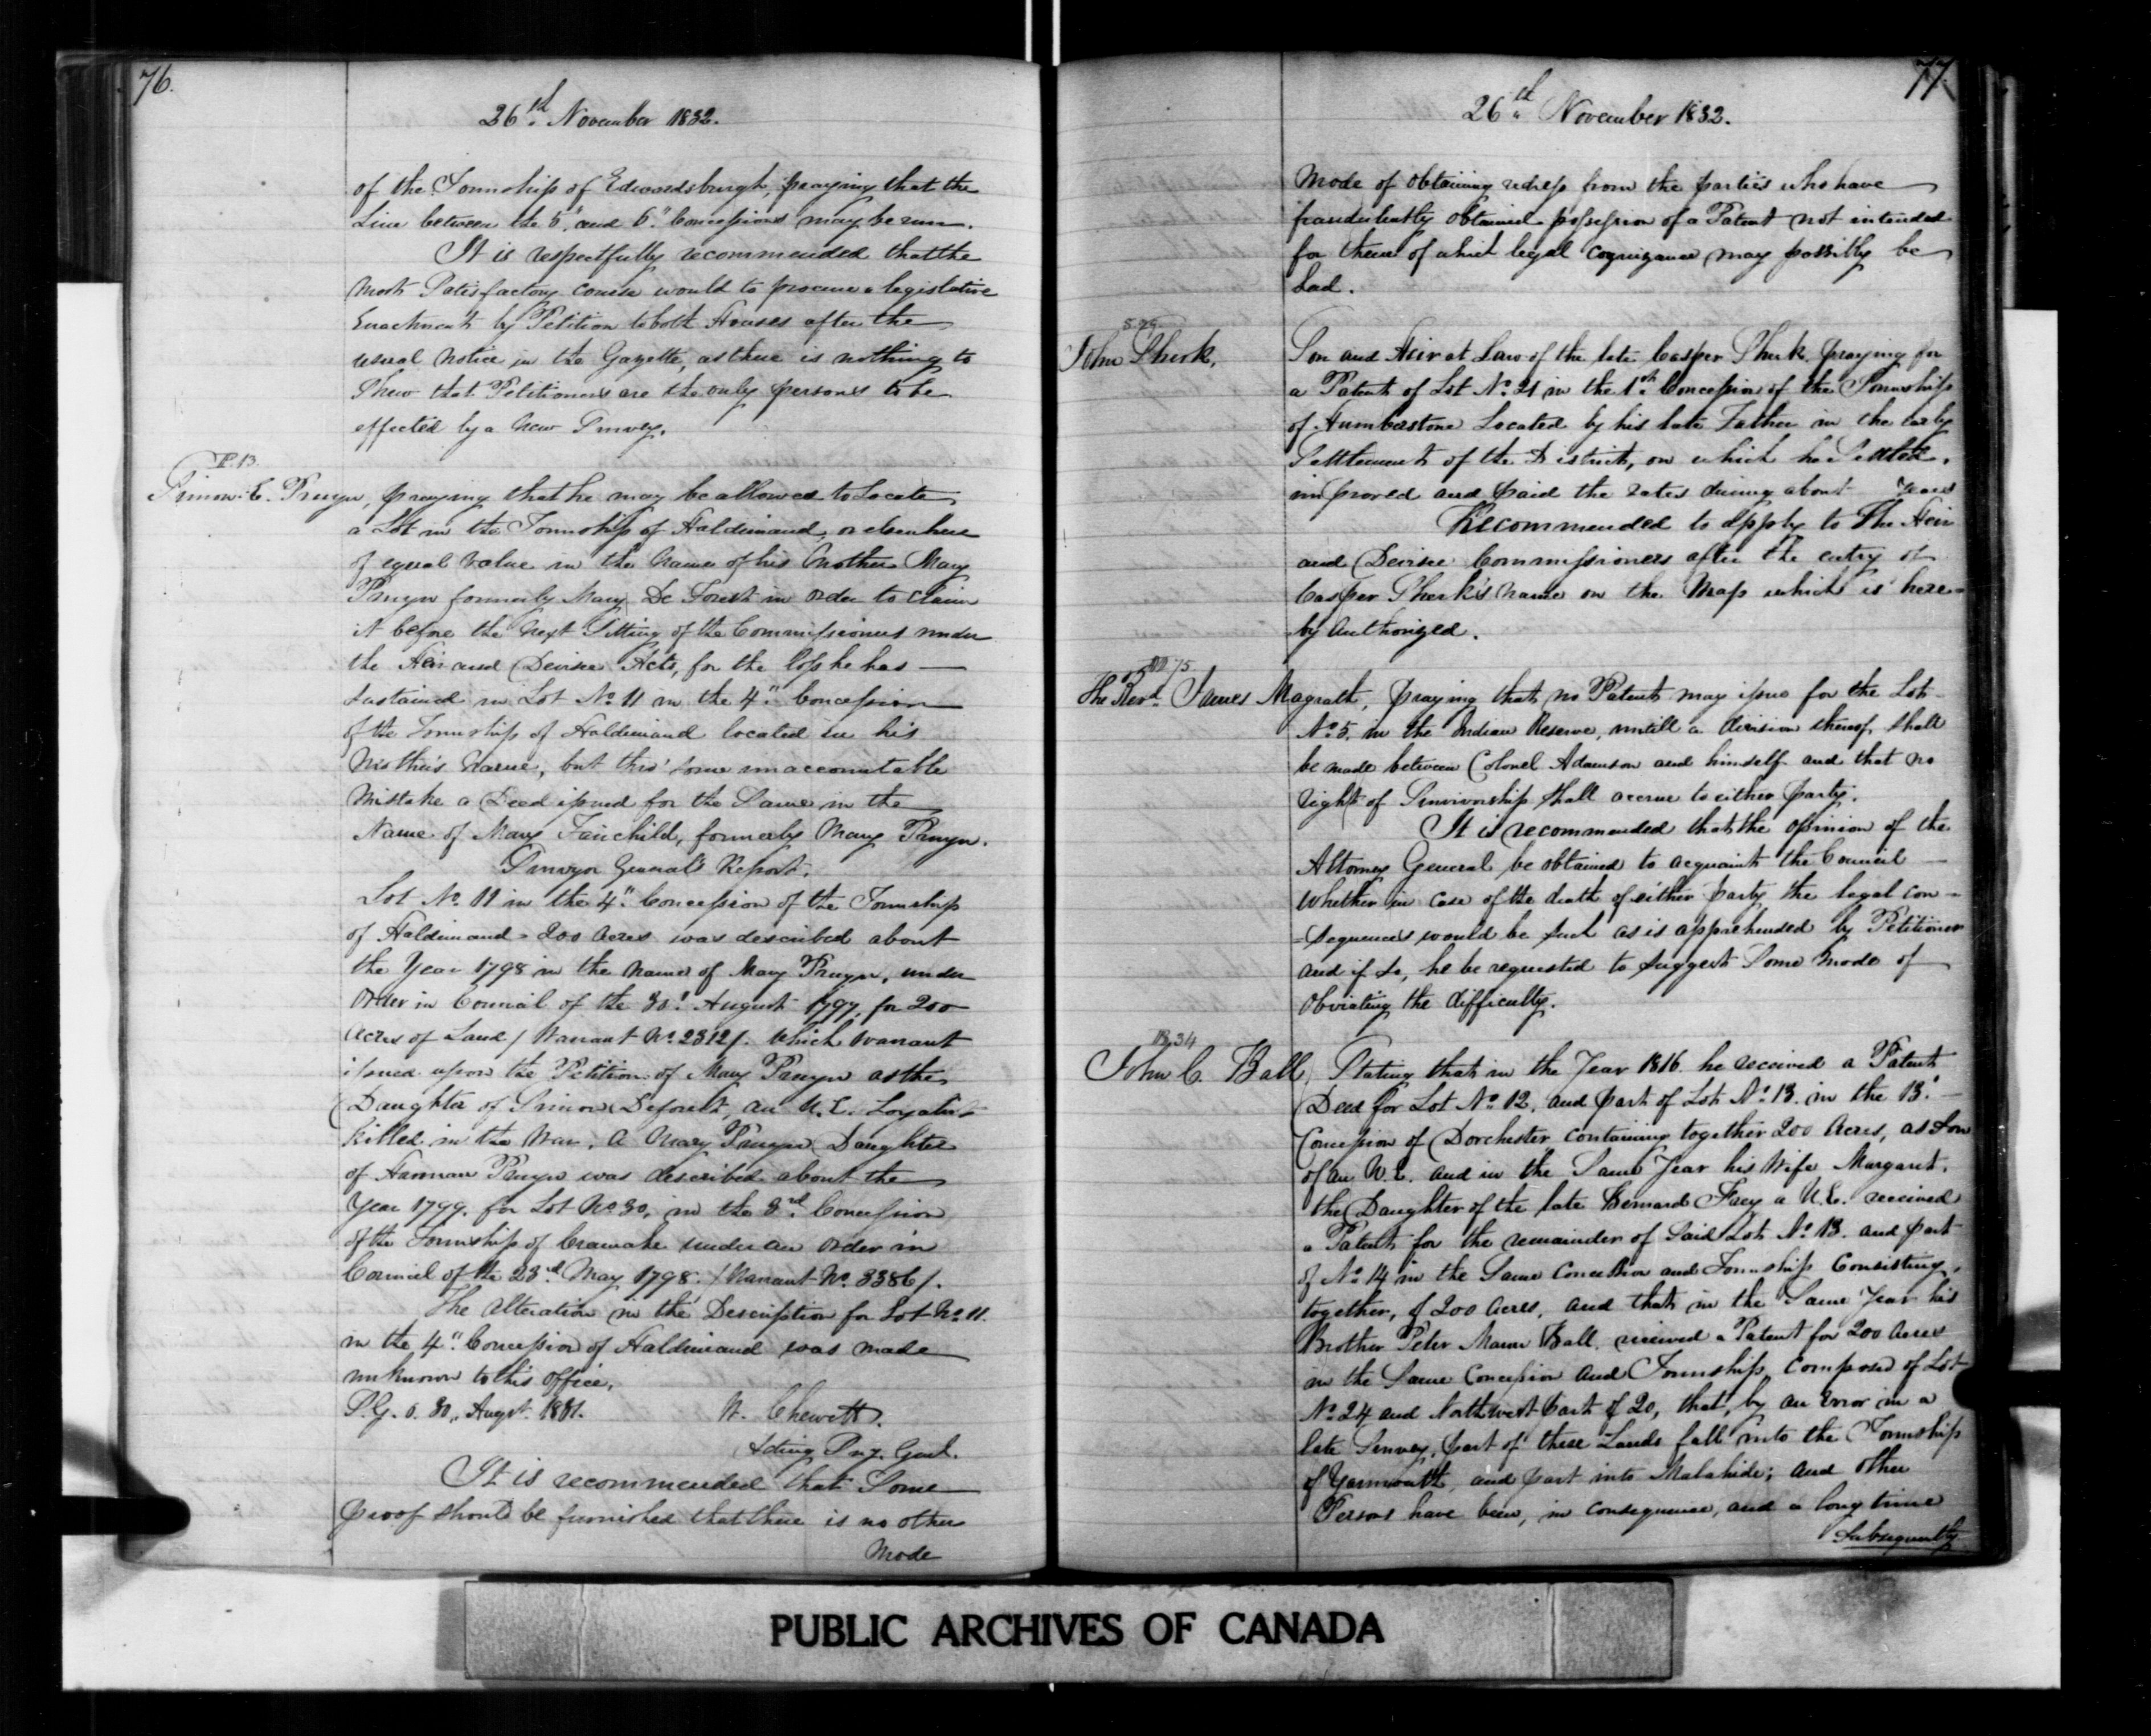 76.
26th November 1832.
of the Township of Edwardsburgh, praying that the
Line between the 5th and 6th Concessions may be run.
It is respectfully recommended that the
Most Satisfactory course would to procure a legislative
Enactment by Petition to both Houses after the
usual Notice in the Gazette, as there is nothing to
Shew that Petitioners are the only persons to be
effected by a New Survey.
P. 13.
Simon E. Pruyn, praying that he may be allowed to Locate
a Lot in the Township of Haldimand, or elsewhere
of equal value in the Name of his Mother Mary
Pruyn formerly Mary De Forest in order to claim
it before the next Sitting of the Commissioners under
the Heir and Devisee Acts, for the loss he has
sustained in Lot No 11 in the 4th Concession
of the Township of Haldimand located in his
Mother's Name, but thro' some unaccountable
Mistake a Deed issued for the Same in the
Name of Mary Fairchild, formerly Mary Pruyn.
Surveyor General's Report.
Lot No. 11 in the 4th Concession of the Township
of Haldimand = 200 Acres was described about
the Year 1798 in the Name of Mary Pruyn, under
Order in Council of the 30th August 1797, for 200
Acres of Land / Warrant No 2312 /. which Warrant
issued upon the Petition of Mary Pruyn as the
Daughter of Simon Deforest, an U.E. Loyalist
killed in the War. A Mary Pruyn Daughter
of Harman Pruyn was described about the
Year 1799. for Lot No 30, in the 3rd Concession
of the Township of Cramahe under an Order in
Council of the 23rd May 1798. / Warrant No. 3386 /.
The Alteration in the Description for Lot No. 11.
in the 4th Concession of Haldimand was made
unknown to this Office.
S.G.O. 30, Augst. 1831.
W. Chewett.
Acting Sur. Genl.
It is recommended that Some
proof should be furnished that there is no other
Mode
77.
26th November 1832.
Mode of Obtaining redress from the parties who have
fraudulently Obtained possession of a Patent not intended
for them of which legal cognizance may possibly be
had.
John Sherk,
Son and Heir at Law of the late Casper Sherk, praying for
a Patent of Lot No. 21 in the 1st Concession of the Township
of Humberstone Located by his late Father in the early
Settlement of the District, on which he Settled,
improved and paid the rates during about years
Recommended to apply to The Heir
and Devisee Commissioners after the entry of
Casper Sherk's Name on the Map which is here=
by Authorized.
The Revd. James Magrath, praying that no Patent may issue for the Lot
No 5. in the Indian Reserve, untill a division thereof, shall
be made between Colonel Adamson and himself and that no
right of Survivorship shall accrue to either party.
It is recommended that the opinion of the
Attorney General be obtained to acquaint the Council
Whether in case of the death of either Party the legal con=
=sequences would be such as is apprehended by Petitioner
and if so, he be requested to suggest Some Mode of
Obviating the difficulty.
B. 34
John C. Ball, Stating that in the Year 1816. he received a Patent
Deed for Lot No. 12, and part of Lot No. 13. in the 13th
Concession of Dorchester containing together 200 Acres, as Son
of an U.E. and in the Same Year his Wife Margaret,
the Daughter of the late Bernard Frey a U.E. received
a Patent for the remainder of Said Lot No. 13. and part
of No. 14 in the Same Concession and Township Consisting,
together, of 200 Acres, and that in the Same Year his
Brother Peter Mann Ball, received a Patent for 200 Acres
in the Same Concession and Township Composed of Lot
No. 24 and North west Part of 20, that, by an Error in a
late Survey, part of these Lands fall into the Township
of Yarmouth, and part into Malahide; and other
Persons have been, in consequence, and a long time
Subsequently
PUBLIC ARCHIVES OF CANADA